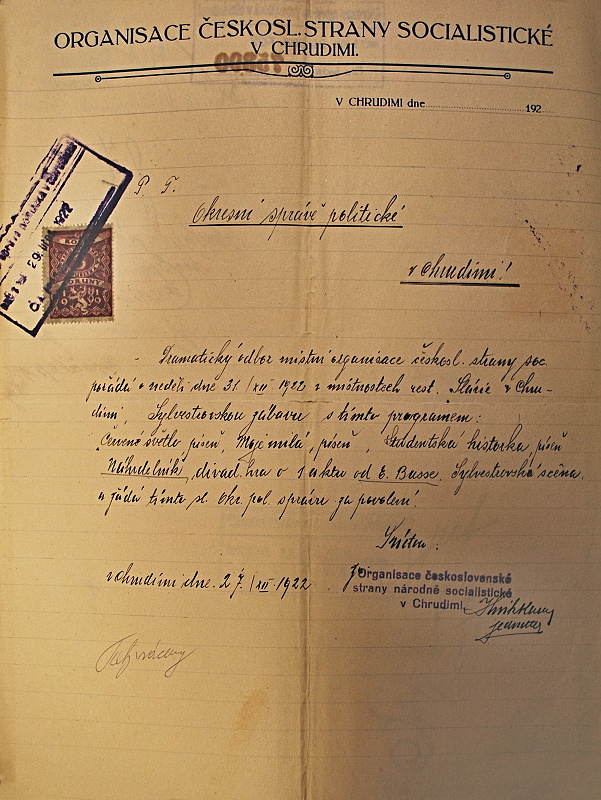 ORGANISACE ČESKOSL. STRANY SOCIALISTICKÉ
V CHRUDIMI.
V CHRUDIMI dne 192
P. T.
Okresní správě politické
v Chrudimi!
Dramatický odbor místní organisace českosl. strany soc.
pořádá v neděli dne 31/XII 1922 v místnostech rest. v Chru-
dimi, Sylvestrovskou zábavu s tímto programem:
Červené světlo, píseň, Moje milá, píseň, Studentská historka, píseň
Náhrdelník, divad. hra o 1 aktu od E. Basse, Sylvestrovská scéna,
a žádá tímto sl. okr. pol. správu za povolení.
v Chrudimi dne 27/XII 1922
Organisace československé
strany národně socialistické
v Chrudimi